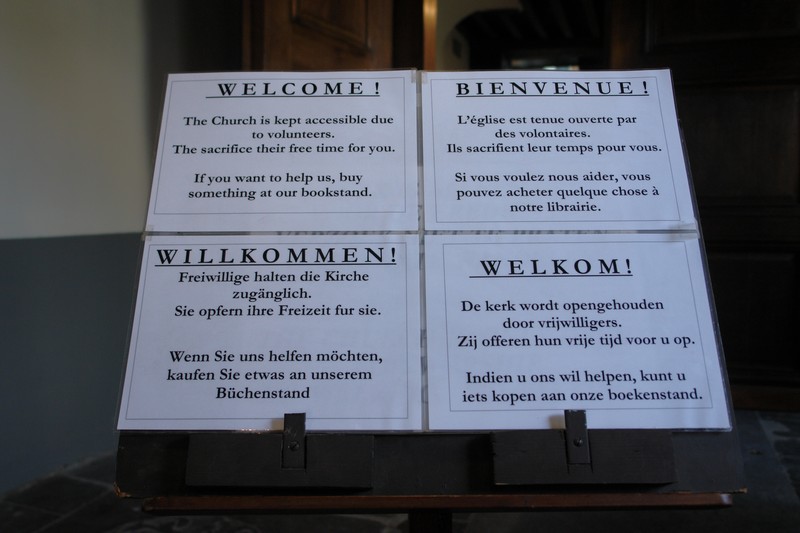 WELCOME!
The Church is kept accessible due
to volunteers.
The sacrifice their free time for you.
If you want to help us, buy
something at our bookstand.
BIENVENUE!
L'église est tenue ouverte par
des volontaires.
Ils sacrifient leur temps pour vous.
Si vous voulez nous aider, vous
pouvez acheter quelque chose à
notre librairie.
WILLKOMMEN!
Freiwillige halten die Kirche
zugänglich.
Sie opfern ihre Freizeit fur sie.
Wenn Sie uns helfen möchten,
kaufen Sie etwas an unserem
Büchenstand
WELKOM!
De kerk wordt opengehouden
door vrijwilligers.
Zij offeren hun vrije tijd voor u op.
Indien u ons wil helpen, kunt u
iets kopen aan onze boekenstand.